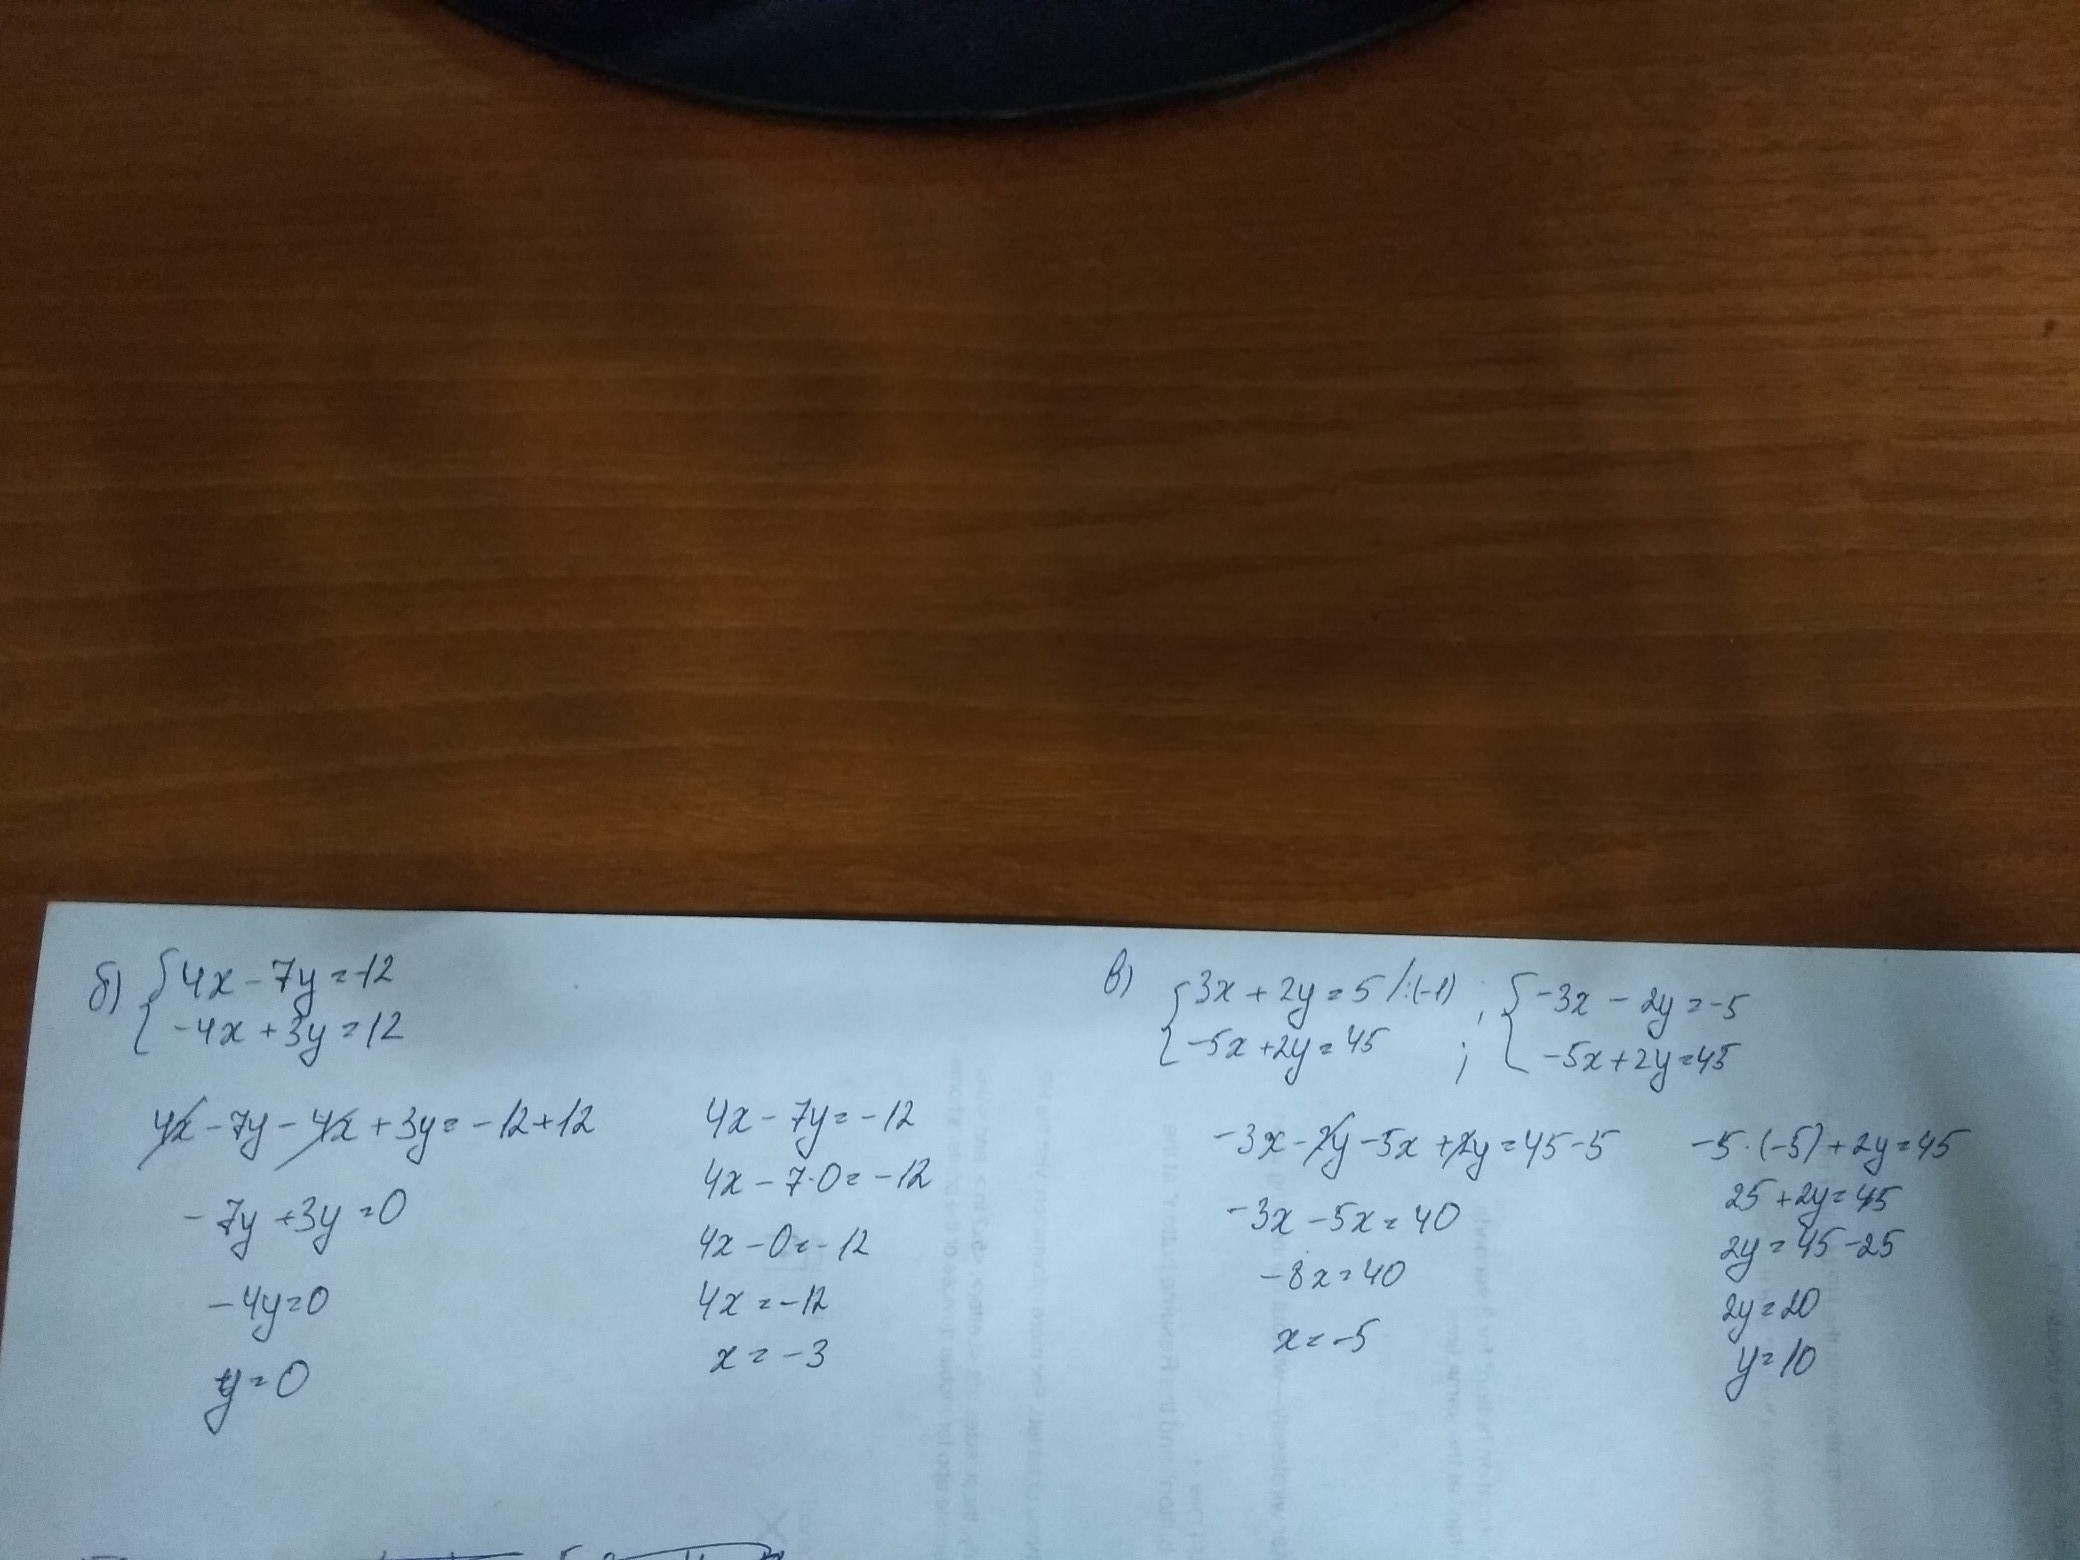 б) {4x - 7y = -12
{-4x + 3y = 12
4x - 7y - 4x + 3y = -12 + 12
-7y + 3y = 0
-4y = 0
y = 0
4x - 7y = -12
4x - 7·0 = -12
4x - 0 = -12
4x = -12
x = -3
в) {3x + 2y = 5 /:(-1) ; {-3x - 2y = -5
{-5x + 2y = 45 ; {-5x + 2y = 45
-3x - 2y - 5x + 2y = 45 - 5
-3x - 5x = 40
-8x = 40
x = -5
-5·(-5) + 2y = 45
25 + 2y = 45
2y = 45 - 25
2y = 20
y = 10